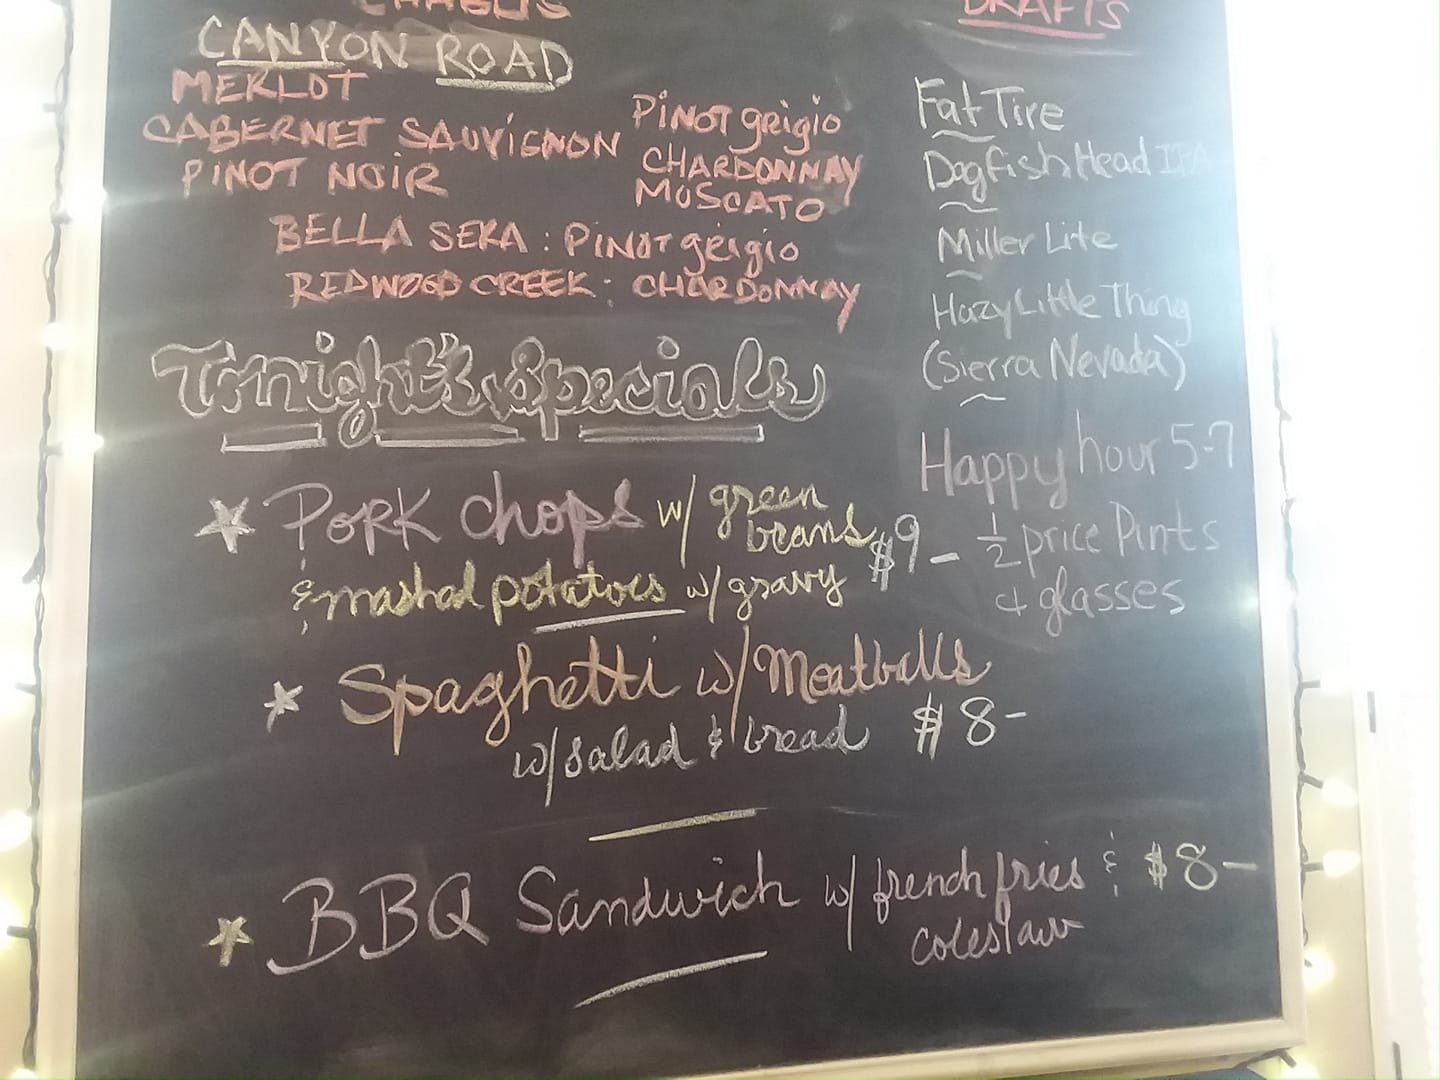 CHABLIS
CANYON ROAD
MERLOT
CABERNET SAUVIGNON
PINOT NOIR
PINOT grigio
CHARDONNAY
MOSCATO
BELLA SERA : PINOT grigio
REDWOOD CREEK : CHARDONNAY
Tonight's Specials
PORK chops w/ green
beans
& mashed potatoes w/ gravy $9-
Spaghetti w/ Meatballs
w/ salad & bread $8-
BBQ Sandwich w/ french fries & $8-
coleslaw
DRAFTS
Fat Tire
Dogfish Head IPA
Miller Lite
Hazy Little Thing
(Sierra Nevada)
Happy hour 5-7
1/2 price Pints
& glasses